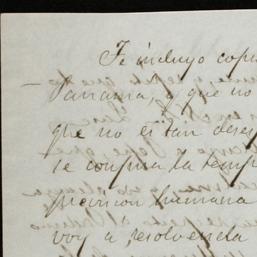 Te incluyo copia
Panamá, y que no
que no es tan deses
se confirma la temp
prevision humana
voy a resolverla